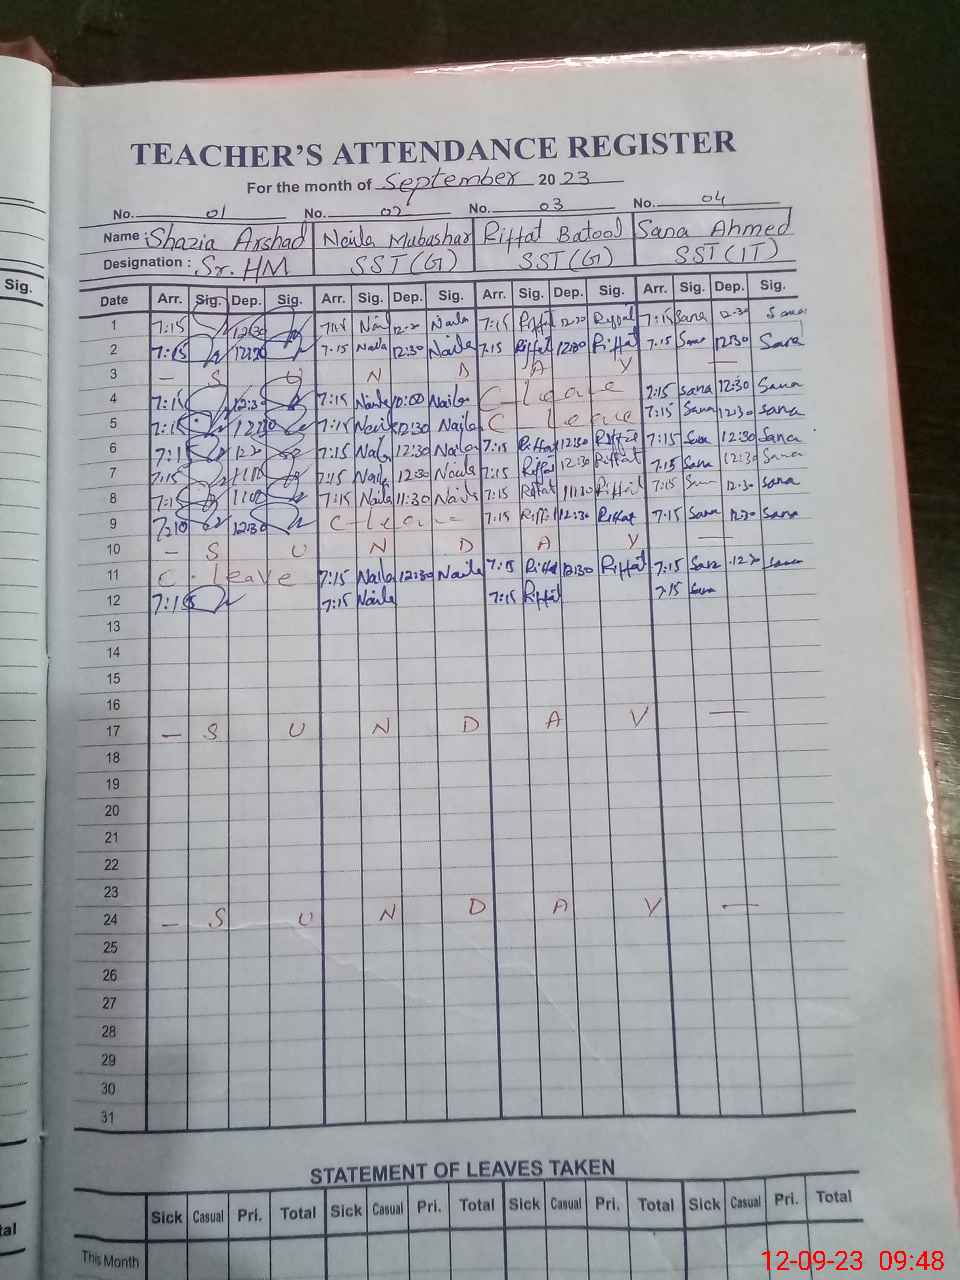 TEACHER'S ATTENDANCE REGISTER
For the month of September 2023
No. 01 No. 02 No. 03 No. 04
Name : Shazia Arshad Naila Mubashar Riffat Batool Sana Ahmed
Designation : Sr. HM SST (G) SST (G) SST (IT)
Sig.
Date Arr. Sig. Dep. Sig. Arr. Sig. Dep. Sig. Arr. Sig. Dep. Sig. Arr. Sig. Dep. Sig.
1 7:15 12:30 7:15 Naila 12:30 Naila 7:15 Riffat 12:30 Riffat 7:15 Sana 12:30 Sana
2 7:15 12:30 7:15 Naila 12:30 Naila 7:15 Riffat 12:30 Riffat 7:15 Sana 12:30 Sana
3 — S U N D A Y —
4 7:15 12:30 7:15 Naila Naila C-leave 7:15 Sana 12:30 Sana
5 7:15 12:30 7:15 Naila 12:30 Naila C-leave 7:15 Sana 12:30 Sana
6 7:15 7:15 Naila 12:30 Naila 7:15 Riffat 12:30 Riffat 7:15 Sana 12:30 Sana
7 7:15 7:15 Naila 12:30 Naila 7:15 Riffat 12:30 Riffat 7:15 Sana 12:30 Sana
8 7:15 7:15 Naila 11:30 Naila 7:15 Riffat 11:30 Riffat 7:15 12:30 Sana
9 7:10 12:30 C-leave 7:15 Riffat 12:30 Riffat 7:15 Sana 12:30 Sana
10 — S U N D A Y —
11 C. leave 7:15 Naila 12:30 Naila 7:15 Riffat 12:30 Riffat 7:15 Sana 12:30 Sana
12 7:15 7:15 Naila 7:15 Riffat 7:15 Sana
13
14
15
16
17 — S U N D A Y —
18
19
20
21
22
23
24 — S U N D A Y —
25
26
27
28
29
30
31
STATEMENT OF LEAVES TAKEN
Sick Casual Pri. Total Sick Casual Pri. Total Sick Casual Pri. Total Sick Casual Pri. Total
This Month
12-09-23 09:48